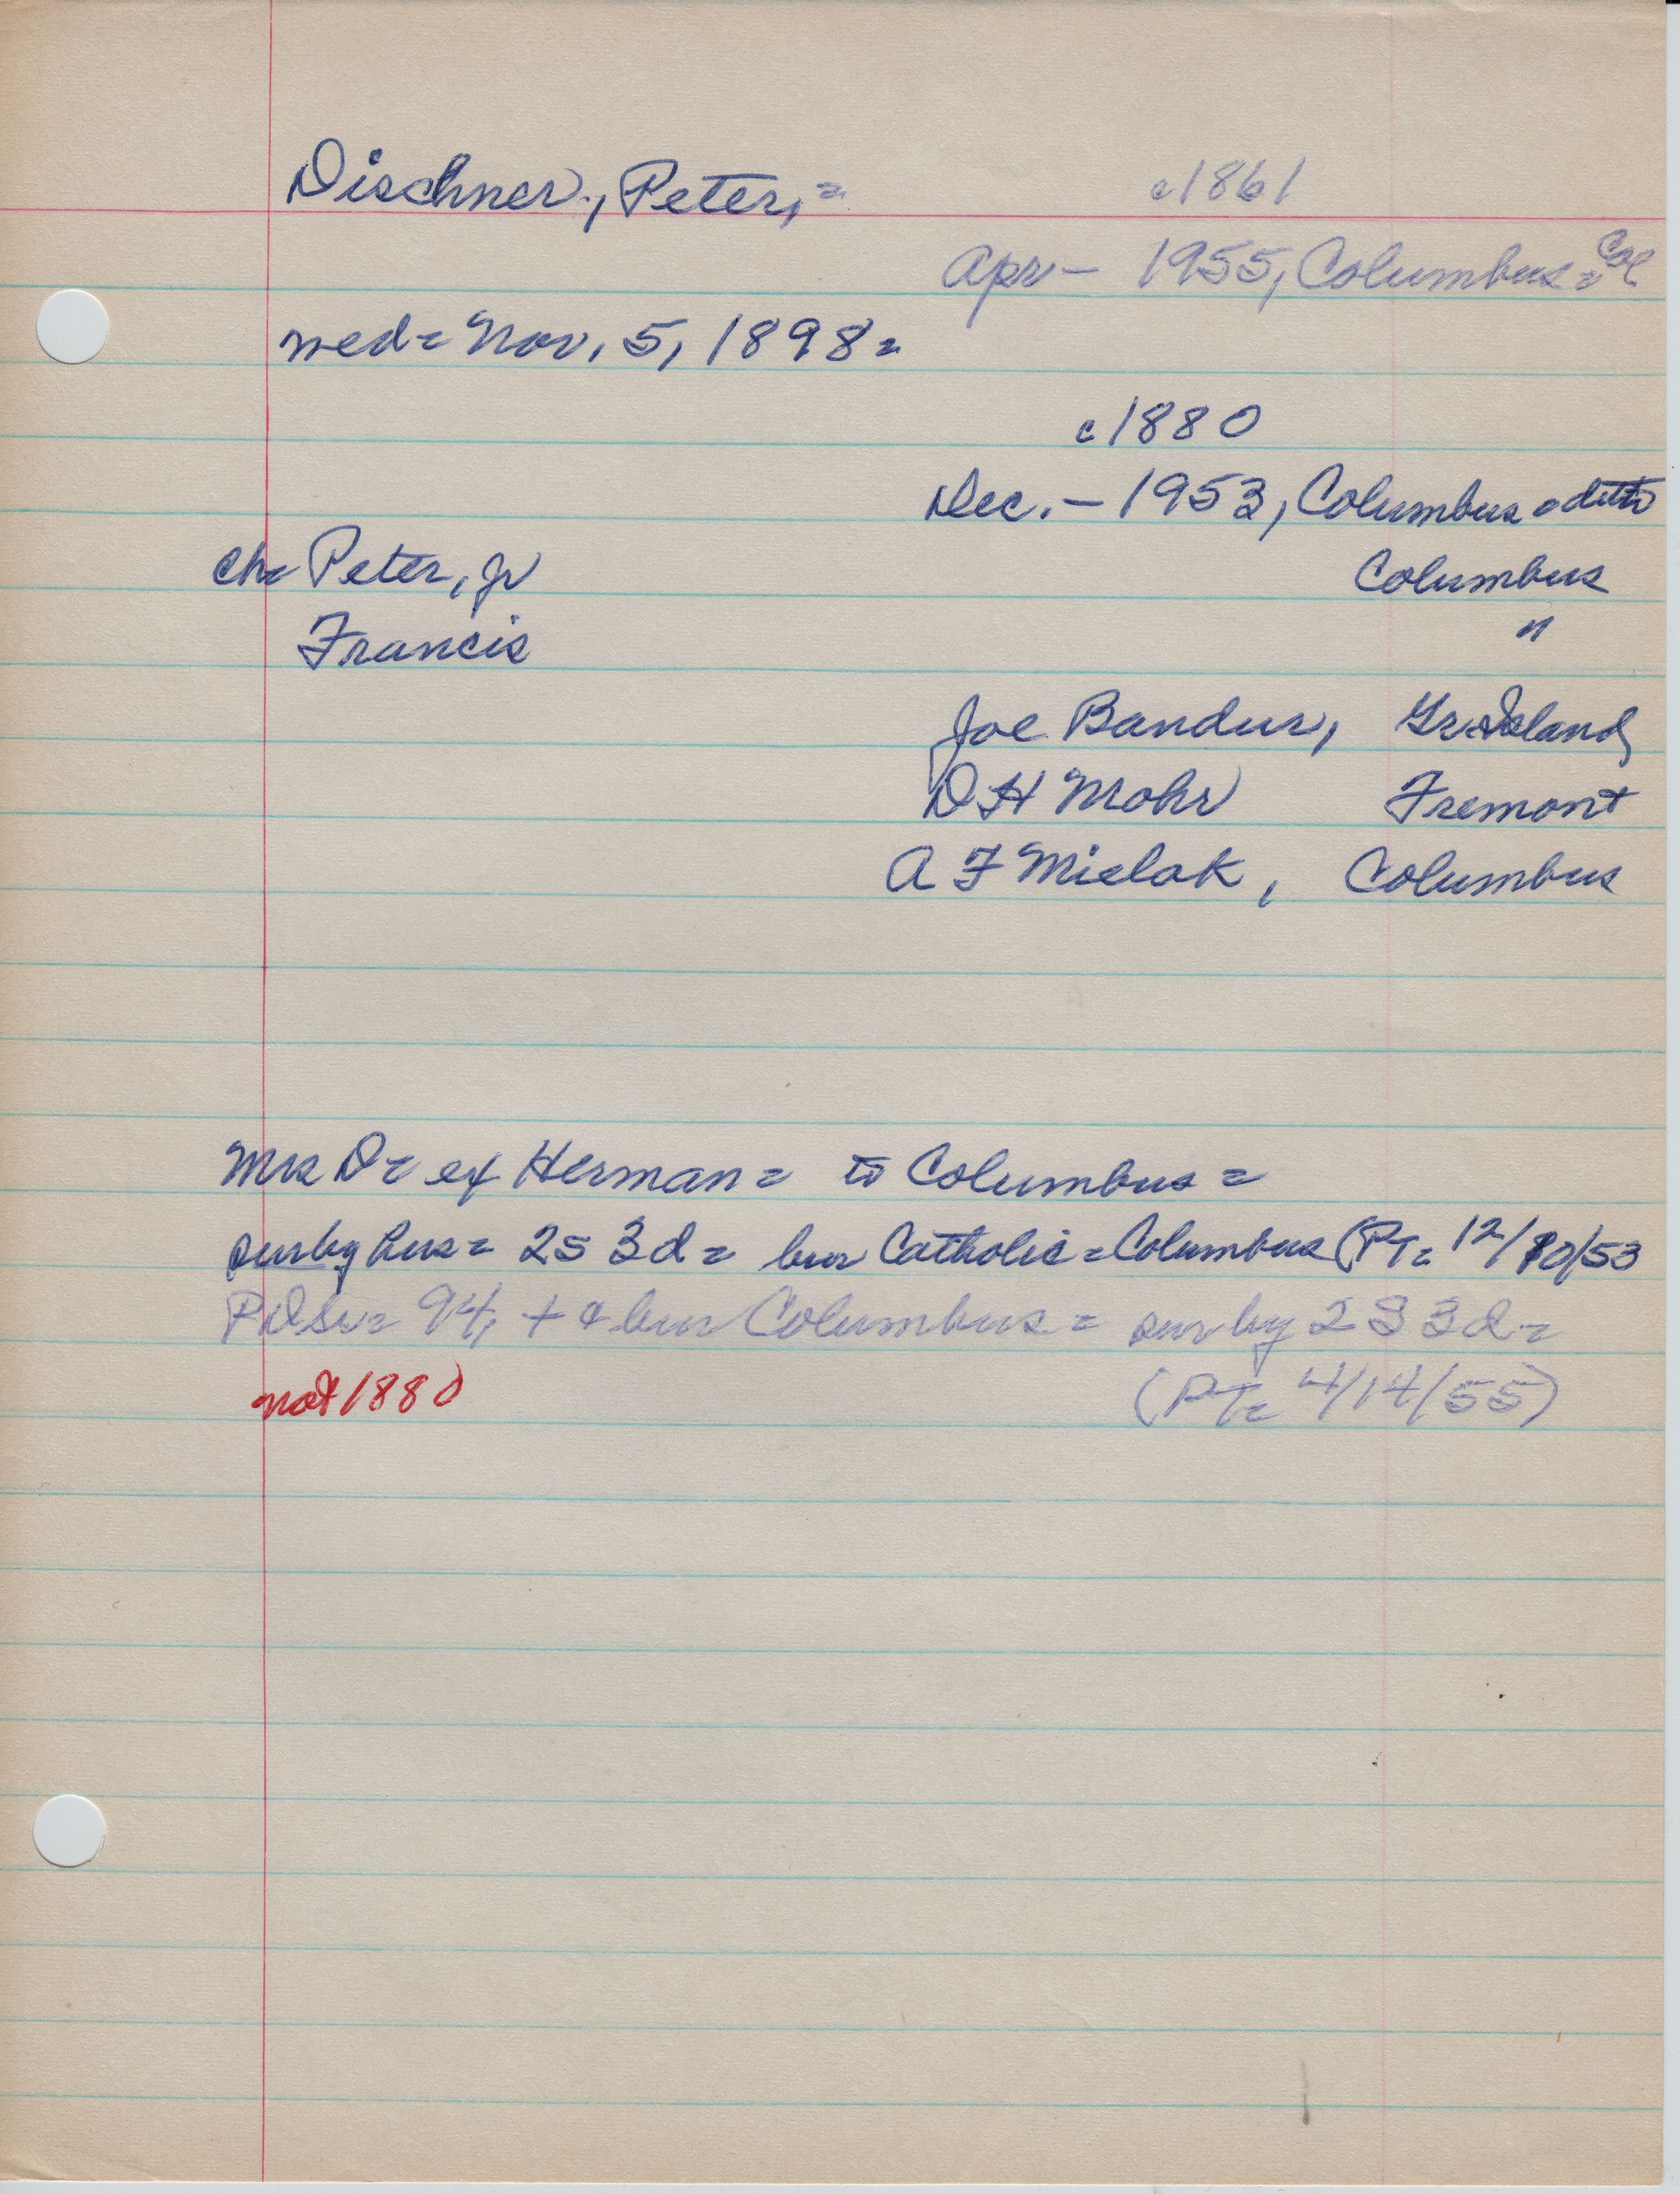 Dischner, Peter, = c1861
Apr - 1955, Columbus = Col
wed = Nov. 5, 1898 =
c1880
Dec. - 1953, Columbus = ditto
ch = Peter, Jr Columbus
Francis "
Joe Bandur, Gr Island
D H Mohr Fremont
A F Mielak, Columbus
Mrs D = ex Herman = to Columbus =
sur by hus = 2s 3d = bur Catholic = Columbus (PT = 12/10/53
PDSr = 94, + & bur Columbus = sur by 2S 3d =
not 1880 (PT = 4/14/55)